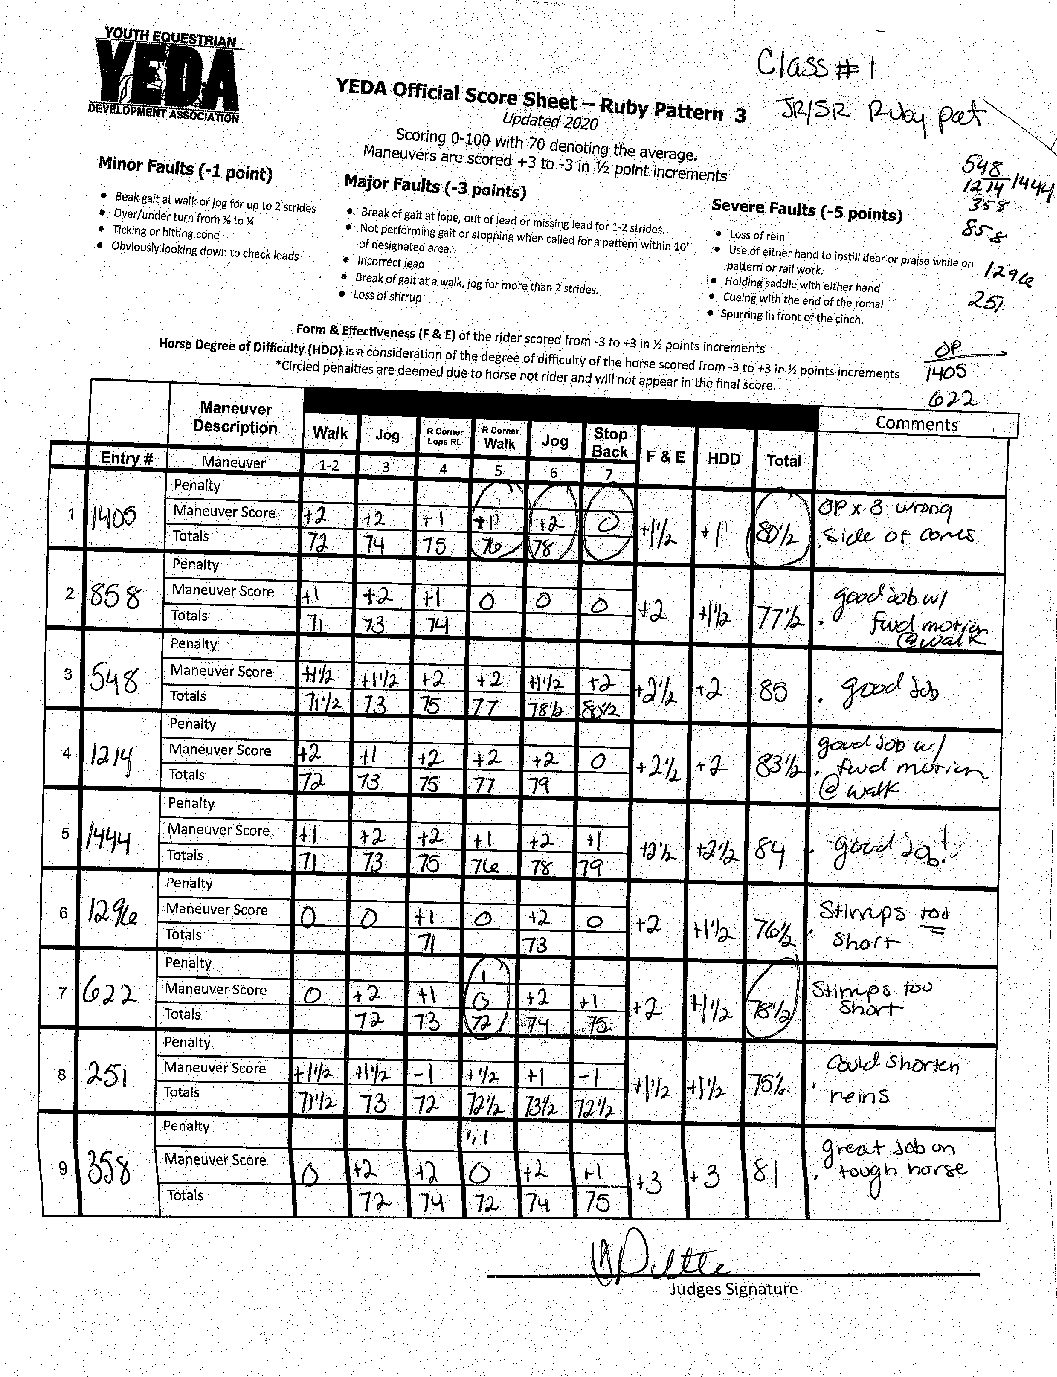 YOUTH EQUESTRIAN
YEDA
DEVELOPMENT ASSOCIATION
Class #1
JR/SR Ruby pat
YEDA Official Score Sheet – Ruby Pattern 3
Updated 2020
Scoring 0-100 with 70 denoting the average.
Maneuvers are scored +3 to -3 in ½ point increments
548
1214 1444
358
858
1296
251
OP
1405
622
Minor Faults (-1 point)
• Beak gait at walk or jog for up to 2 strides
• Over/under turn from ⅛ to ¼
• Ticking or hitting cone
• Obviously looking down to check leads
Major Faults (-3 points)
• Break of gait at lope, out of lead or missing lead for 1-2 strides.
• Not performing gait or stopping when called for a pattern within 10'
of designated area.
• Incorrect lead
• Break of gait at a walk, jog for more than 2 strides.
• Loss of stirrup
Severe Faults (-5 points)
• Loss of rein
• Use of either hand to instill dear or praise while on
pattern or rail work.
• Holding saddle with either hand
• Cueing with the end of the romal
• Spurring in front of the cinch.
Form & Effectiveness (F & E) of the rider scored from -3 to +3 in ½ points increments
Horse Degree of Difficulty (HDD) is a consideration of the degree of difficulty of the horse scored from -3 to +3 in ½ points increments
*Circled penalties are deemed due to horse not rider and will not appear in the final score.
Maneuver Description Walk Jog R Corner Lope RL R Corner Walk Jog Stop Back F & E HDD Total Comments
Entry # Maneuver 1-2 3 4 5 6 7
Penalty
1 1405 Maneuver Score +2 +2 +1 +1 +2 0 +1½ +1 80½ OP x 8 wrong side of cones
Totals 72 74 75 76 78
Penalty
2 858 Maneuver Score +1 +2 +1 0 0 0 +2 +1½ 77½ good job w/ fwd motion @ walk
Totals 71 73 74
Penalty
3 548 Maneuver Score +1½ +1½ +2 +2 +1½ +2 +2½ +2 85 good job
Totals 71½ 73 75 77 78½ 80½
Penalty
4 1214 Maneuver Score +2 +1 +2 +2 +2 0 +2½ +2 83½ good job w/ fwd motion @ walk
Totals 72 73 75 77 79
Penalty
5 1444 Maneuver Score +1 +2 +2 +1 +2 +1 +2½ +2½ 84 good job!
Totals 71 73 75 76 78 79
Penalty
6 1296 Maneuver Score 0 0 +1 0 +2 0 +2 +1½ 76½ Stirrups too short
Totals 71 73
Penalty 1
7 622 Maneuver Score 0 +2 +1 0 +2 +1 +2 +1½ 78½ Stirrups too short
Totals 72 73 72 74 75
Penalty
8 251 Maneuver Score +1½ +1½ -1 +½ +1 -1 +1½ +1½ 75½ Could shorten reins
Totals 71½ 73 72 72½ 73½ 72½
Penalty 1,1
9 358 Maneuver Score 0 +2 +2 0 +2 +1 +3 +3 81 great job on tough horse
Totals 72 74 72 74 75
Judges Signature